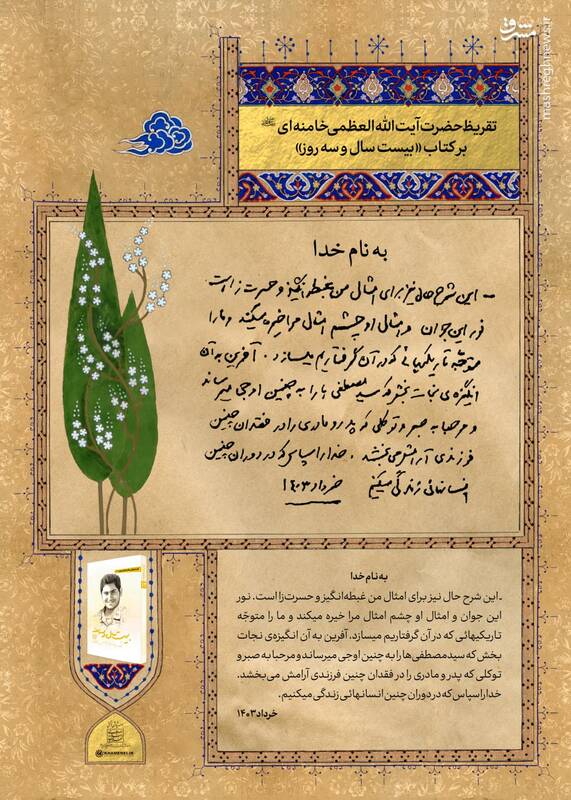 مشرق
mashreghnews.ir
تقریظ حضرت آیت الله العظمی خامنه ای
بر کتاب «بیست سال و سه روز»
به نام خدا
ـ این شرح حال نیز برای امثال من غبطه‌انگیز و حسرت‌زا است
نور این جوان و امثال او چشم امثال مرا خیره میکند و ما را
متوجّه تاریکیهائی که در آن گرفتاریم میسازد. آفرین به آن
انگیزه‌ی نجات بخش که سید مصطفی ها را به چنین اوجی میرساند
و مرحبا به صبر و توکلی که پدر و مادری را در فقدان چنین
فرزندی آرامش می‌بخشد. خدا را سپاس که در دوران چنین
انسانهائی زندگی میکنیم خرداد ۱۴۰۳
به نام خدا
ـ این شرح حال نیز برای امثال من غبطه‌انگیز و حسرت‌زا است. نور
این جوان و امثال او چشم امثال مرا خیره میکند و ما را متوجّه
تاریکیهائی که در آن گرفتاریم میسازد. آفرین به آن انگیزه‌ی نجات
بخش که سید مصطفی ها را به چنین اوجی میرساند و مرحبا به صبر و
توکلی که پدر و مادری را در فقدان چنین فرزندی آرامش می‌بخشد.
خدا را سپاس که در دوران چنین انسانهائی زندگی میکنیم.
خرداد ۱۴۰۳
@KHAMENEI.IR